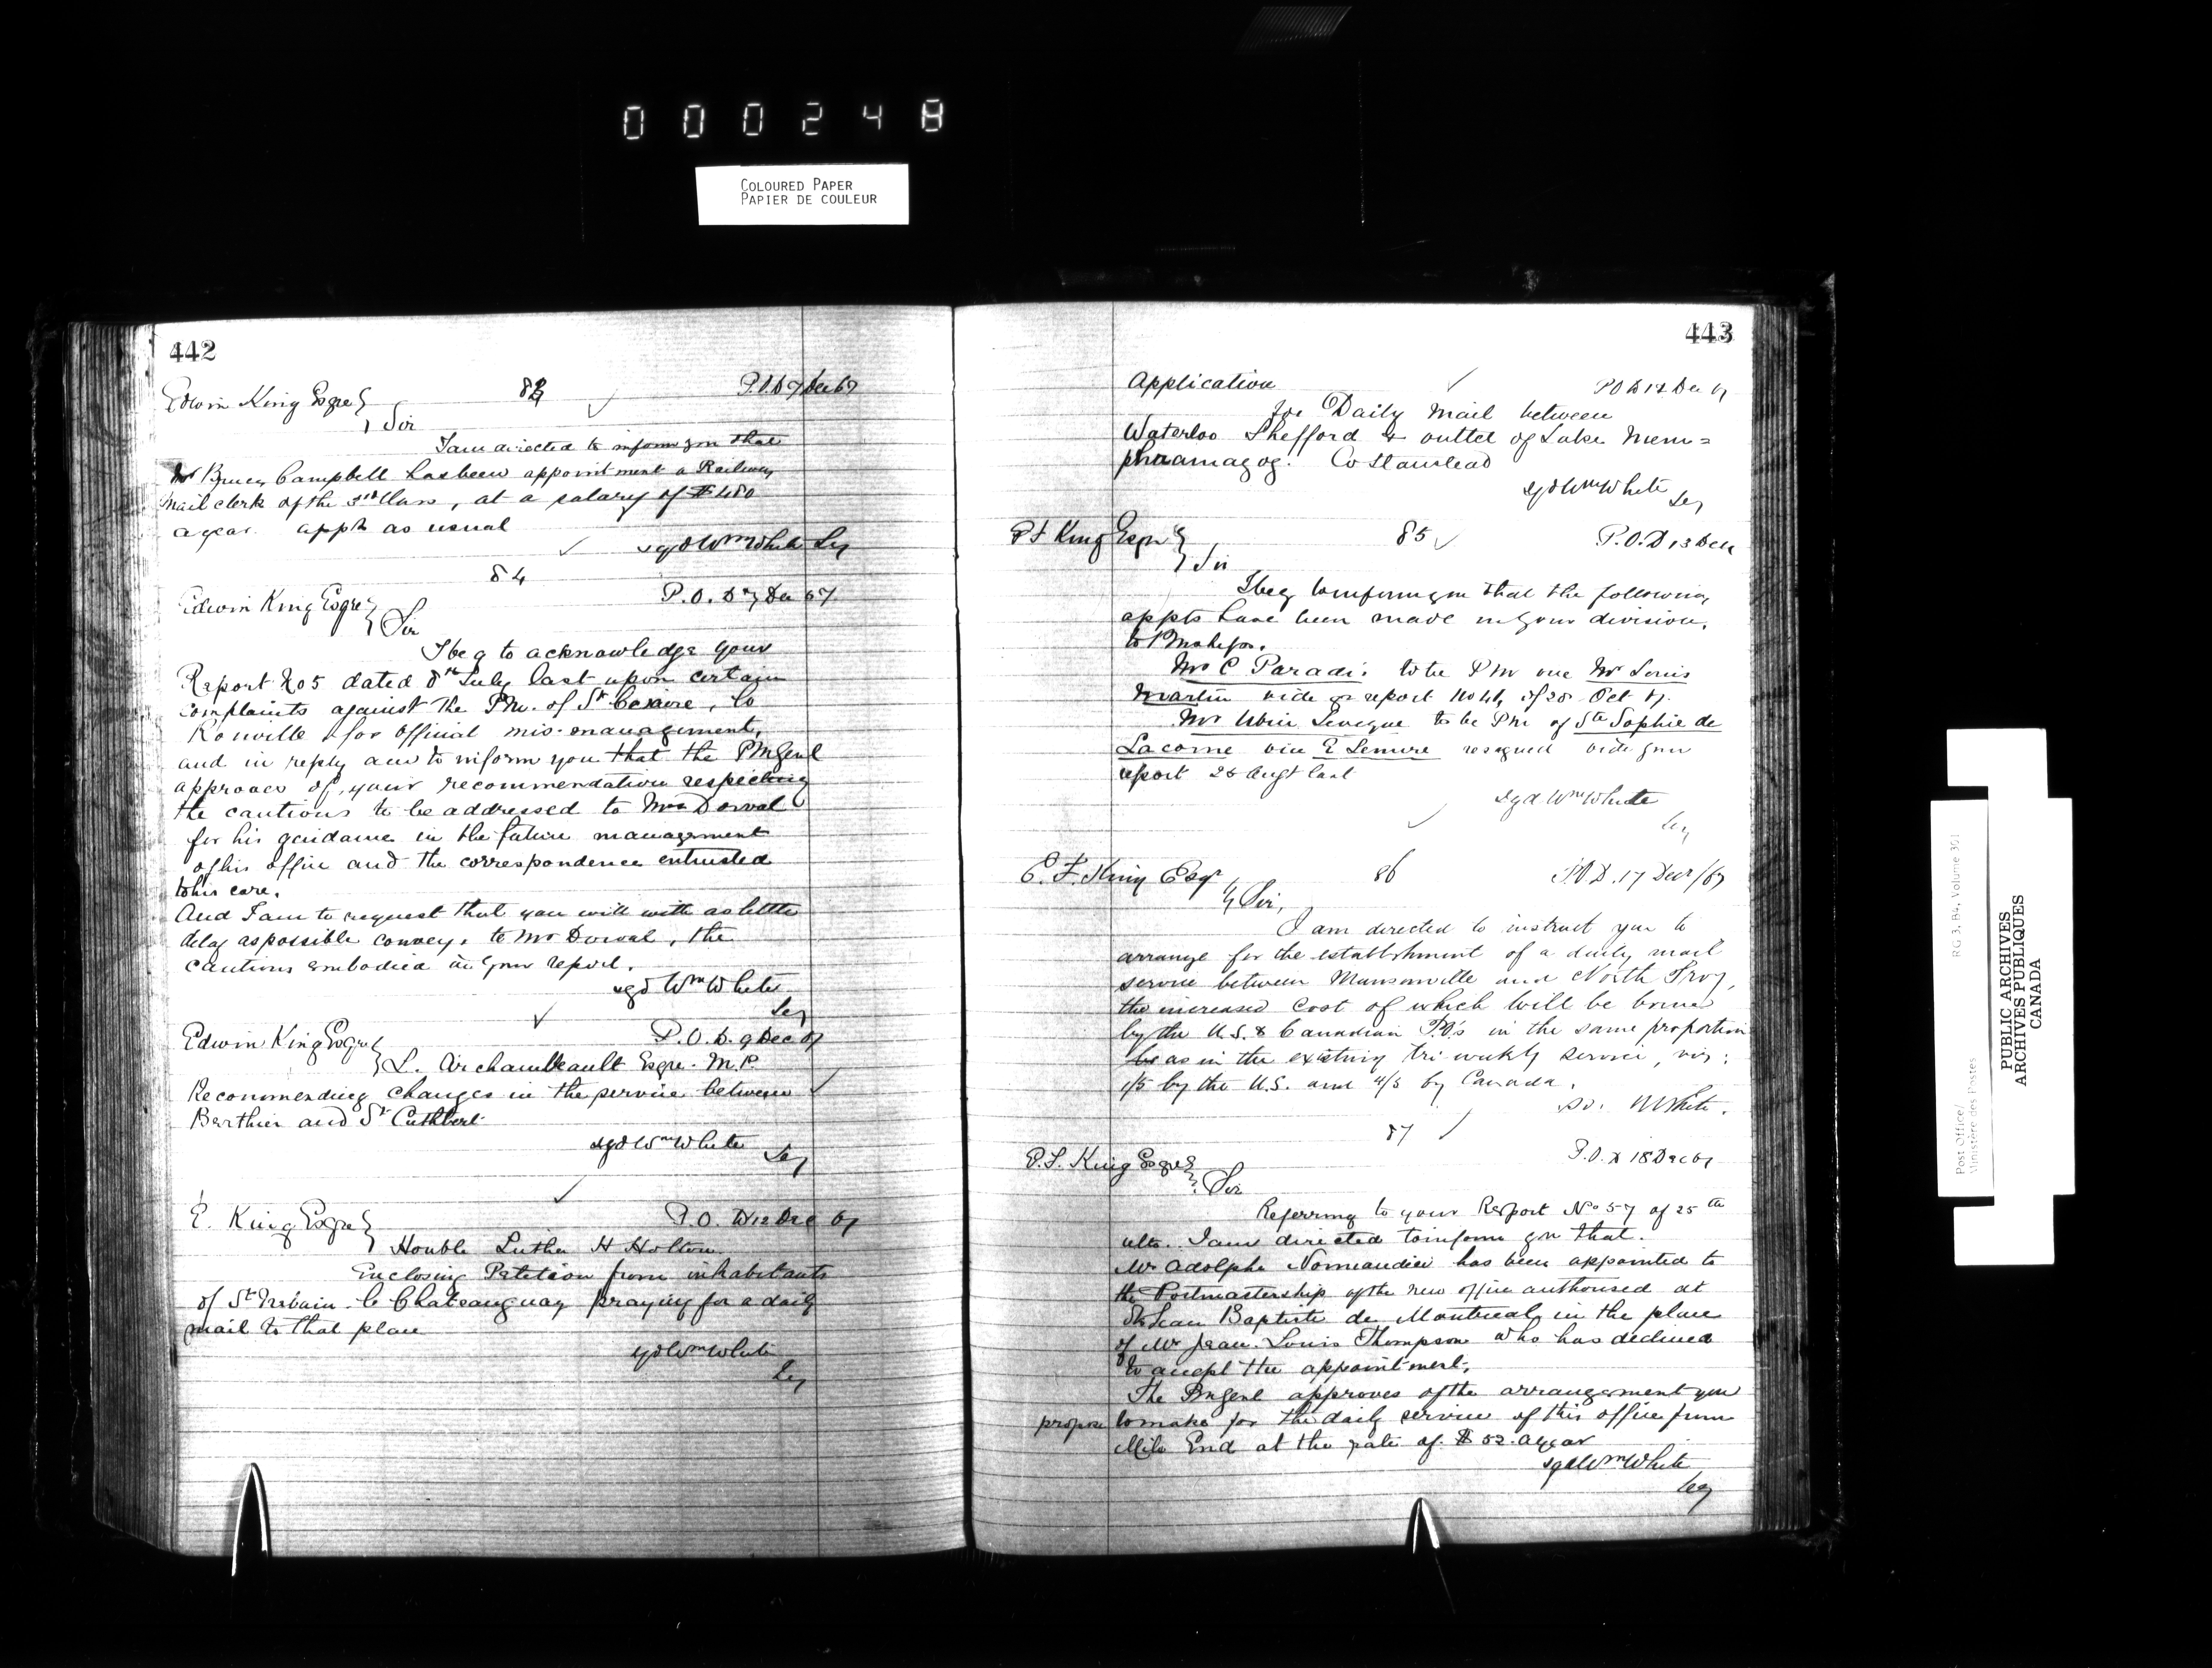 000248
COLOURED PAPER
PAPIER DE COULEUR
442
Edwin King Esqre 83 P.O.D 7 Dec 67
Sir
I am directed to inform you that
Mr Campbell has been appointment a Railway
Mail clerk of the 3rd Class, at a salary of $480
a year. appt as usual
sgd Wm White Sey
84
Edwin King Esqre P.O.D 7 Dec 67
Sir
I beg to acknowledge your
Report No 5 dated 8th July last upon certain
complaints against the P.M. of St Cesaire, Co
Rouville for official mis-management,
and in reply am to inform you that the PMGenl
approves of your recommendation respecting
the cautions to be addressed to Mr Dorval
for his guidance in the future management
of his office and the correspondence entrusted
to his care.
And I am to request that you will with as little
delay as possible convey, to Mr Dorval, the
cautions embodied in your report.
sgd Wm White
Sey
Edwin King Esqre P.O.D. 9 Dec 67
L. Archambeault Esqre. M.P.
Recommending changes in the service between
Berthier and St Cuthbert
sgd Wm White
Sey
E. King Esqre P.O.D 12 Dec 67
Honble Luther H Holton
Enclosing Petition from inhabitants
of St Urbain Co Chateauguay praying for a daily
mail to that place
sgd Wm White
Sey
443
Application POD 12 Dec 67
for Daily Mail between
Waterloo Shefford & outlet of Lake Mem=
phramagog. Co Stanstead
sgd Wm White
Sey
E F King Esqre 85 P.O.D 13 Dec
Sir
I beg to inform you that the following
appts have been made in your division,
to P Masters.
Mr C Paradis to be P M vice Mr Louis
Martin vide report No 46 of 28 Oct 67.
Mr Leveque to be PM of Ste Sophie de
Lacorne vice E Lemire resigned vide your
report 26 Augt last
sgd Wm White
Sey
E. F. King Esqr 86 P.O.D. 17 Decr/67
Sir,
I am directed to instruct you to
arrange for the establishment of a daily mail
service between Mansonville and North Troy,
the increased cost of which will be borne
by the U.S. & Canadian P.O's in the same proportion
as in the existing tri-weekly service, viz:
1/5 by the U.S. and 4/5 by Canada.
White.
87
E.F. King Esqre P.O.D 18 Dec 67
Sir
Referring to your Report No 57 of 25th
ulto. I am directed to inform you that.
Mr Adolphe Normandin has been appointed to
the Postmastership of the new office authorised at
St Jean Baptiste de Montreal, in the place
of Mr Jean Louis Thompson who has declined
to accept the appointment.
The PMGenl approves of the arrangement you
propose to make for the daily service of this office from
Mile End at the rate of $52. a year
sgd Wm White
Sey
RG 3, B4, Volume 301
Post Office/
Ministère des Postes
PUBLIC ARCHIVES
ARCHIVES PUBLIQUES
CANADA